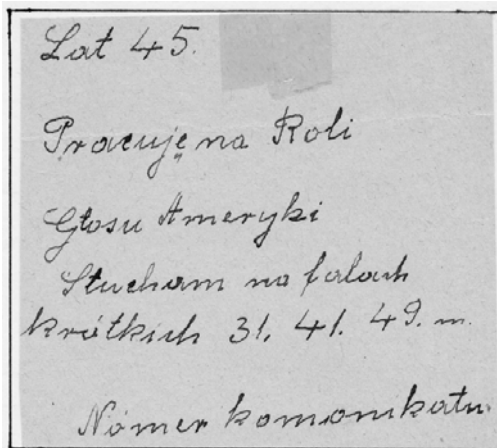 Lat 45.
Pracuję na Roli
Głosu Ameryki
Słucham na falach
krótkich 31. 41. 49. m.
Nómer komonikatu